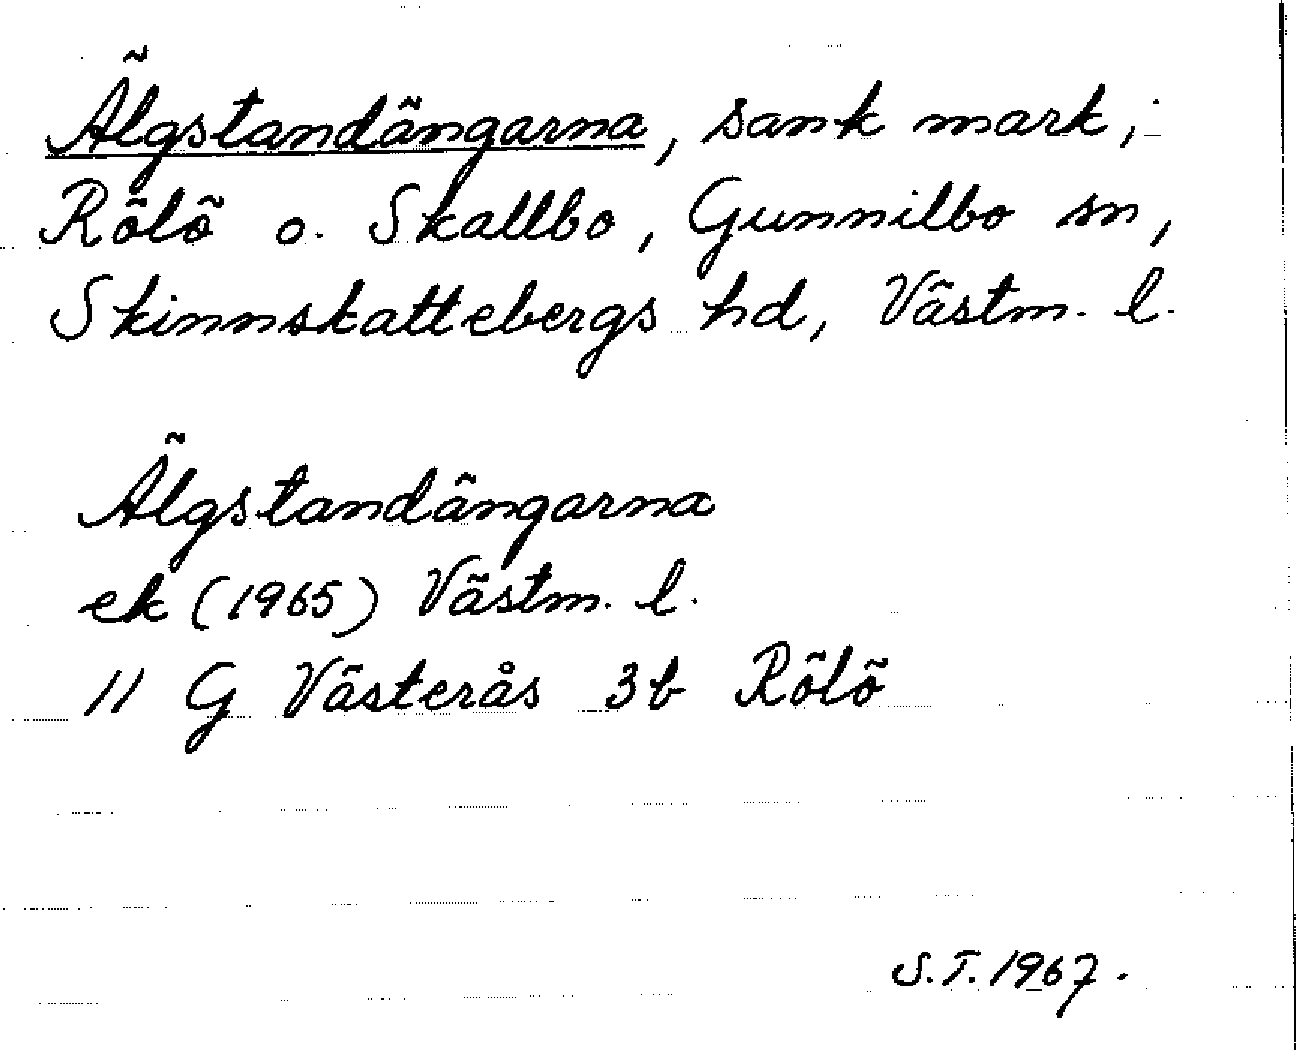 Älgstandängarna, sank mark;
Rölö o. Skallbo, Gunnilbo sn,
Skinnskattebergs hd, Västm. l.
Älgstandängarna
ek (1965) Västm. l.
11 G Västerås 3b Rölö
S.T. 1967.